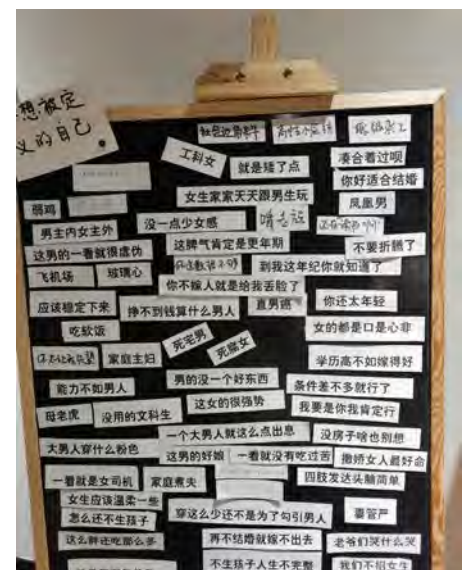 想被定
义的自己。
工科女
就是矮了点
凑合着过呗
你好适合结婚
女生家家天天跟男生玩
凤凰男
弱鸡
男主内女主外
没一点少女感
啃老族
这男的一看就很虚伪
这脾气肯定是更年期
不要折腾了
飞机场
玻璃心
到我这年纪你就知道了
你不嫁人就是给我丢脸了
应该稳定下来
挣不到钱算什么男人
直男癌
你还太年轻
吃软饭
死宅男
死腐女
女的都是口是心非
家庭主妇
学历高不如嫁得好
能力不如男人
男的没一个好东西
条件差不多就行了
母老虎
没用的文科生
这女的很强势
我要是你我肯定行
一个大男人就这么点出息
没房子啥也别想
大男人穿什么粉色
这男的好娘
一看就没有吃过苦
撒娇女人最好命
一看就是女司机
家庭煮夫
四肢发达头脑简单
女生应该温柔一些
怎么还不生孩子
穿这么少还不是为了勾引男人
妻管严
这么胖还吃那么多
再不结婚就嫁不出去
老爷们哭什么哭
不生孩子人生不完整
我们不招女生